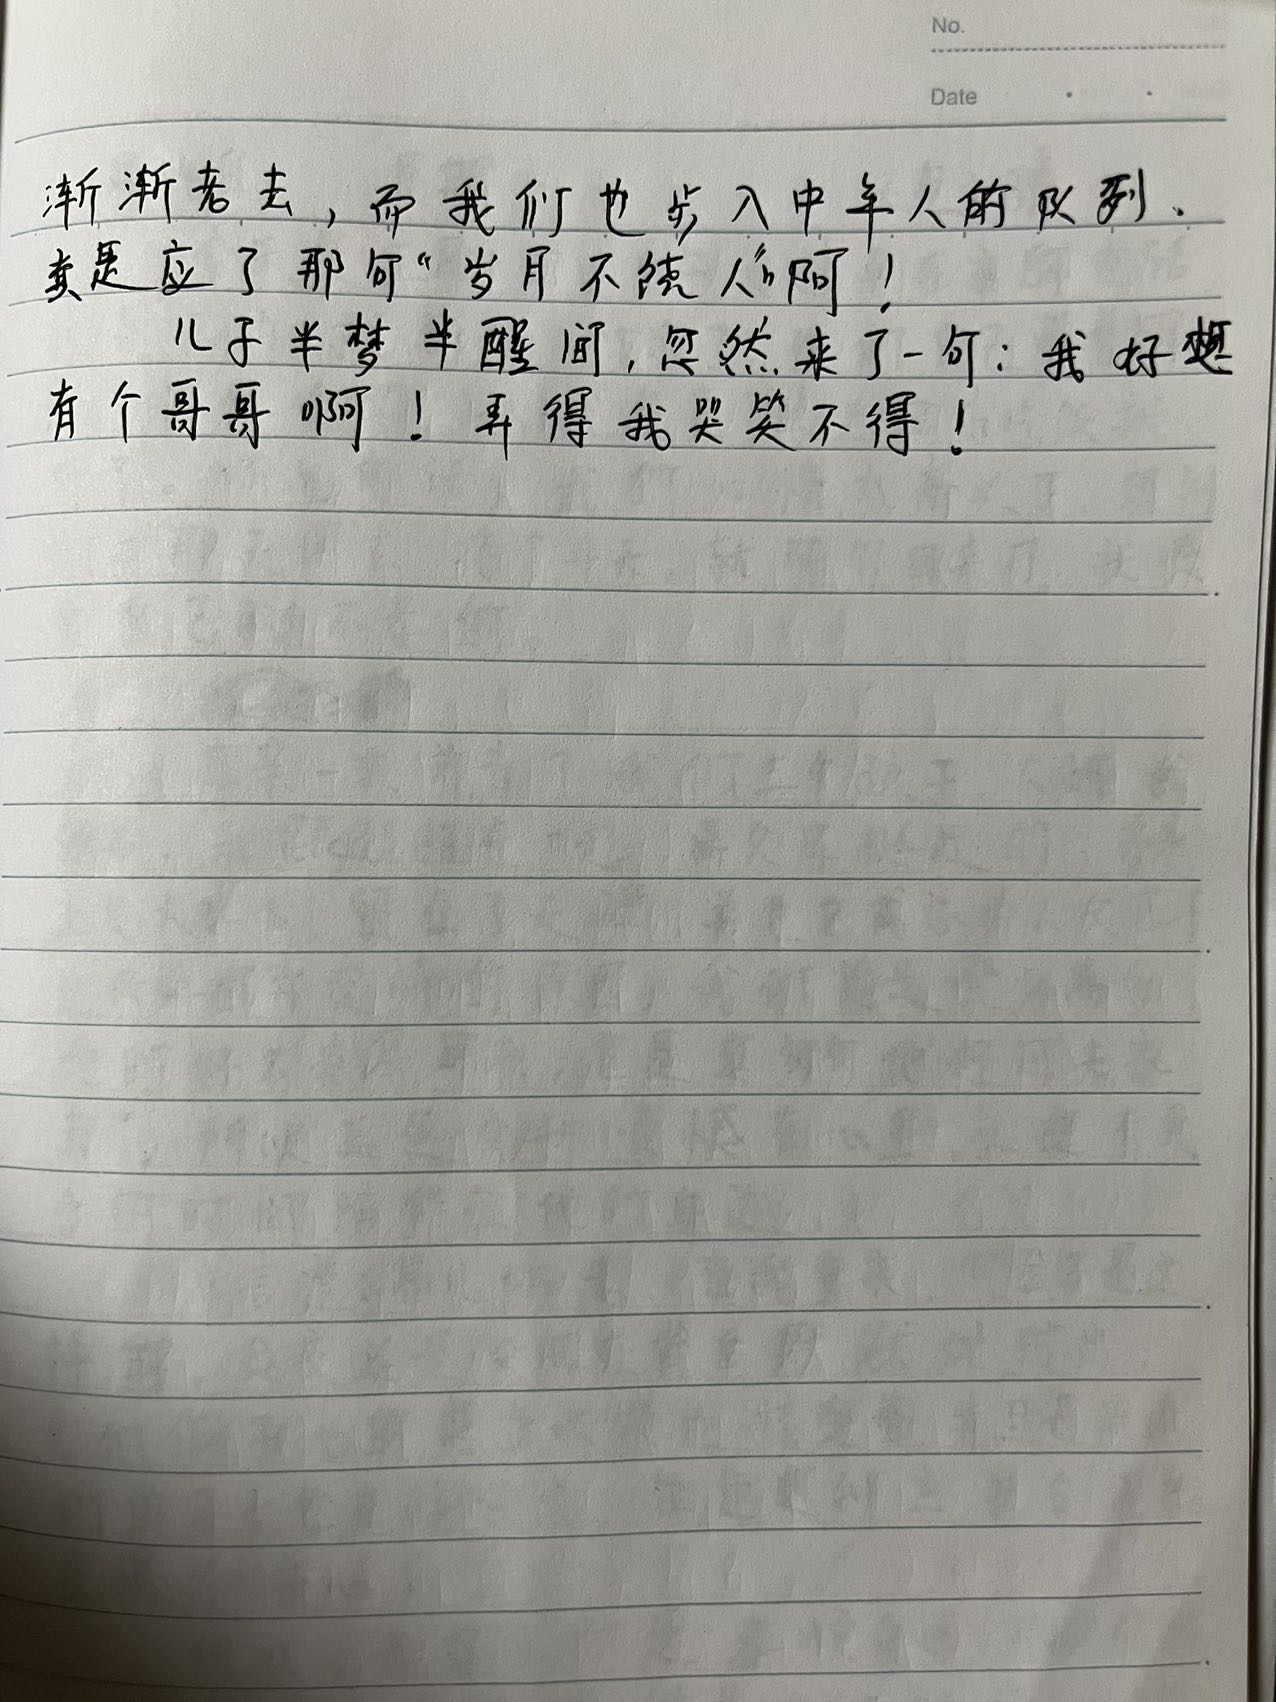 No.
Date
渐渐老去，而我们也步入中年人的队列、
真是应了那句“岁月不饶人”啊！
儿子半梦半醒间，忽然来了一句：我好想
有个哥哥啊！弄得我哭笑不得！